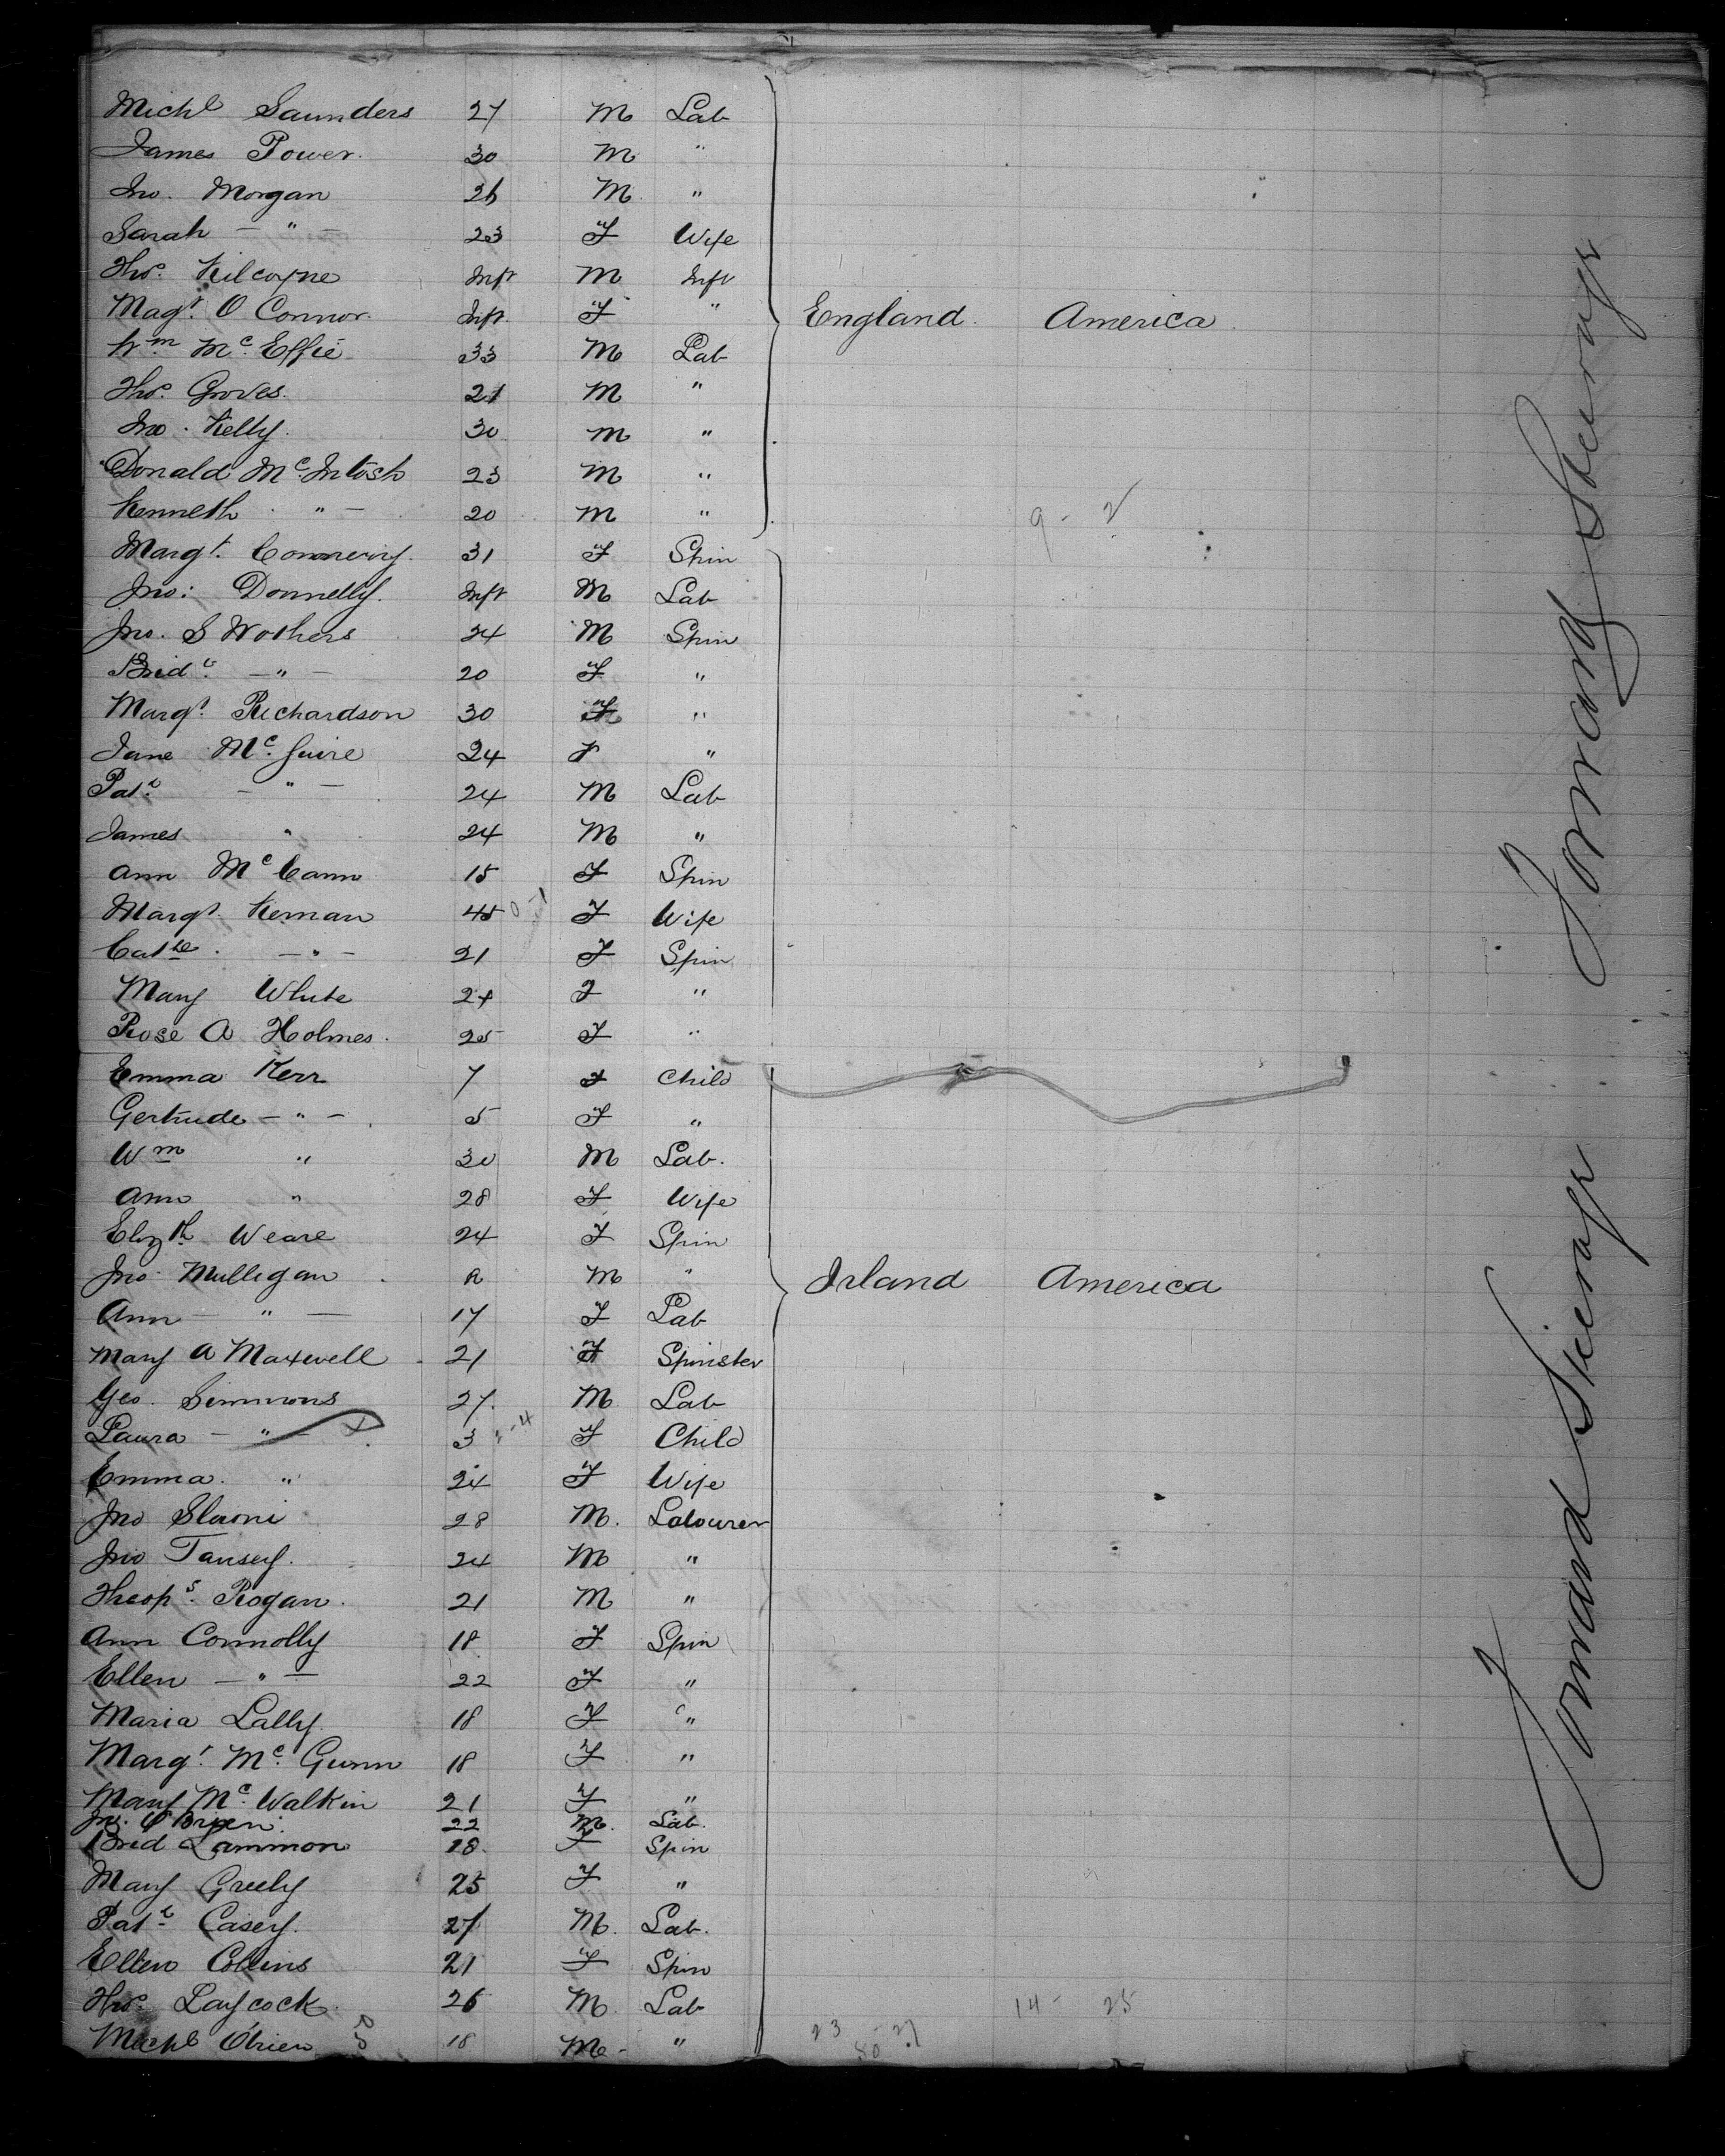 Michl Saunders 27 M Lab
James Power. 30 M "
Jno. Morgan 26 M "
Sarah — " — 23 F Wife
Thos. Kilcoyne Inft M Inft
Magt. O Connor. Inft. F "
England. America.
Wm. Mc. Effie 33 M Lab
Thos. Groves. 21 M "
Jno. Kelly. 30 M "
Donald Mc. Intosh 23 M "
Kenneth " — 20 M "
9 - 2
Margt. 31 F Spin
Jno. Donnelly. Inft M Lab
Jno. S Wothers 24 M Spin
Bridt. — " — 20 F "
Margt. Richardson 30 F "
Jane Mc. Guire 24 F "
Patk. — " — 24 M Lab
James " 24 M "
Ann Mc Cann 15 F Spin
Margt. Kernan 45 F Wife
Cathe. — " — 21 F Spin
Mary White 24 F "
Rose A Holmes. 25 F "
Emma Kerr 7 F Child
Gertrude — " — 5 F "
Wm " 30 M Lab.
Ann " 28 F Wife
Elizth. Weare 24 F Spin
Jno. Mulligan M "
Irland America
Ann — " — 17 F Lab
Mary A Maxwell 21 F Spinster
Geo. Simmons 27. M Lab
Laura — " — 3 F Child
Emma. " 24 F Wife
Jno 28 M. Labourer
Jno Tansey. 24 M "
Theops. Rogan. 21 M "
Ann Connolly 18 F Spin
Ellen — " — 22 F "
Maria Lally 18 F "
Margt. Mc. Gunn 18 F "
Mary Mc. Walkin 21 F "
Jno. O'Brien. 22 M. Lab.
Brid Lammon 18. F Spin
Mary Greely 25 F "
Patk. Casey. 27 M. Lab.
Ellen Collins 21 F Spin
Thos. Laycock 26 M. Lab
14 - 25
Michl O'Brien 18 M - "
23 - 27
50
Forward Steerage
Forward Steerage